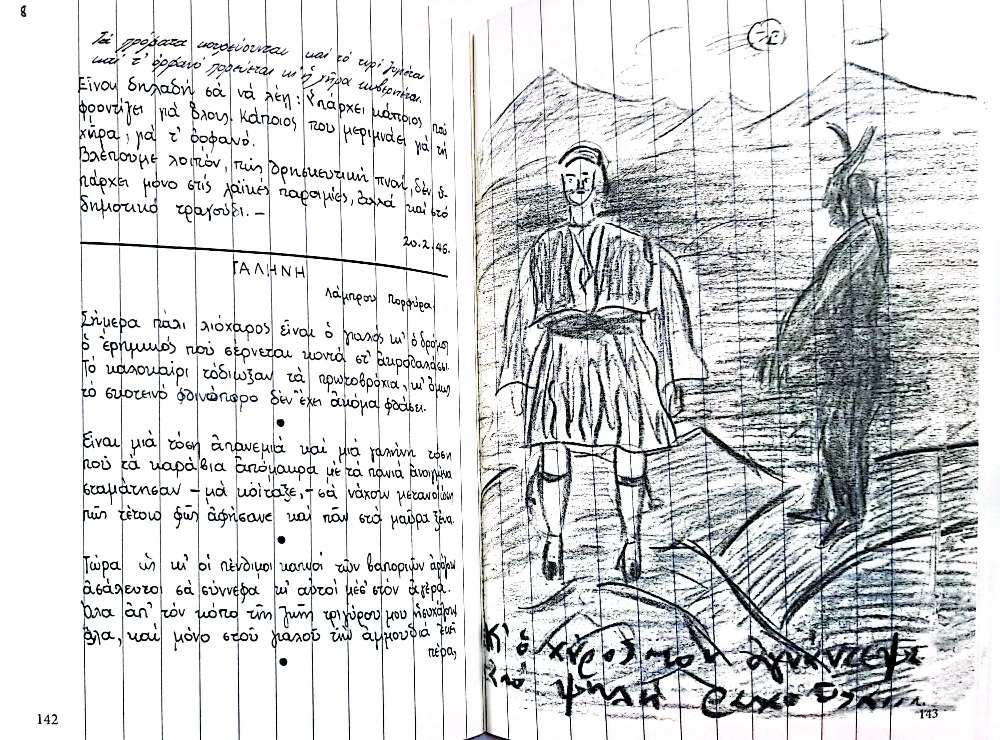 8
Τά πρόβατα κουρεύονται καί τό τυρί ζυγιέται
καί τ' ὀρφανό πορεύεται κι' ἡ χήρα κυβερνιέται.
Εἶναι δηλαδή σά νά λέῃ: Ὑπάρχει κάποιος πού
φροντίζει γιά ὅλους. Κάποιος που μεριμνάει γιά τή
χήρα, γιά τ' ὀρφανό.
Βλέπουμε λοιπόν, πώς θρησκευτική πνοή, δέν ὑ-
πάρχει μόνο στίς λαϊκές παροιμίες, ἀλλά καί στό
δημοτικό τραγούδι. –
20.2.46.
ΓΑΛΗΝΗ
Λάμπρου Πορφύρα
Σήμερα πάλι λιόχαρος εἶναι ὁ γιαλός κι' ὁ δρόμος
ὁ ἐρημικός πού σέρνεται κοντά στ' ἀκροθαλάσσι.
Τό καλοκαίρι τὄδιωξαν τά πρωτοβρόχια, κι' ὅμως
τό σκοτεινό φθινόπωρο δέν ἔχει ἀκόμα φθάσει.
Εἶναι μιά τόση ἀπανεμιά καί μιά γαλήνη τόση
πού τά καράβια ἀπόμακρα με τά πανιά ἀνοιγμένα
σταμάτησαν – μά κοίταξε, – σά νἄχουν μετανοιώσει
πώς τέτοιο φῶς ἀφήσανε καί πᾶν στά μαῦρα ξένα.
Τώρα ὡς κι' οἱ πένθιμοι καπνοί τῶν βαποριῶν
ἀσάλευτοι σά σύννεφα κι' αὐτοί μέσ' στόν ἀγέρα.
Ὅλα ἀπ' τόν κόπο τῆς ζωῆς τριγύρου μου ἡσυχάζουν
ὅλα, καί μόνο στοῦ γιαλοῦ τήν ἀμμουδιά ἐκεῖ
πέρα,
142
Κι ὁ χάρος τον ἀγνάντεψε
ψηλή
143